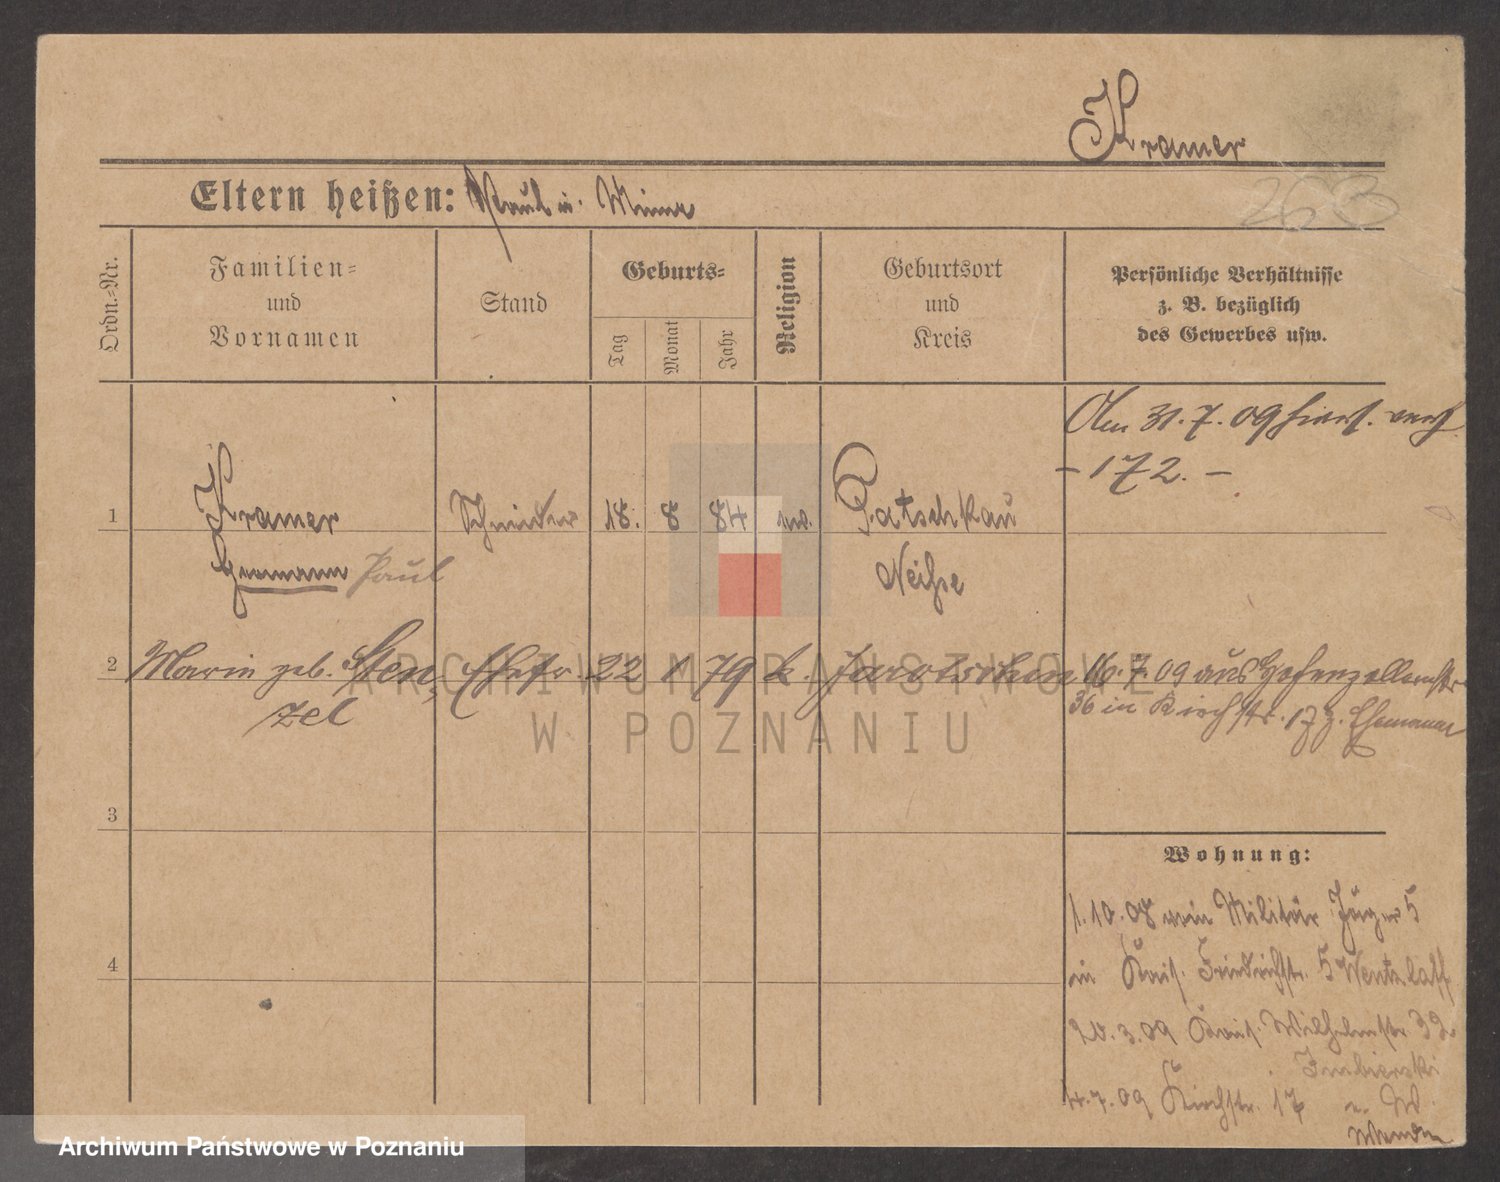 Kramer
Eltern heißen: Paul u. Minna
263
Ordn.-Nr.
Familien-
und
Vornamen
Stand
Geburts-
Tag
Monat
Jahr
Religion
Geburtsort
und
Kreis
Persönliche Verhältnisse
z. B. bezüglich
des Gewerbes usw.
Am 31.7.09 hiers. verh
- 172. -
1
Kramer
Schneider
18.
8
84
Patschkau
Hermann Paul
Neiße
2
Marie geb. Sten-
zel
Ehefr.
22
1
79
k.
Jarotschin
16.7.09 aus Hohenzollernstr
36 in Kirchstr. 17 z. Ehemann
3
Wohnung:
1.10.08 vom Militär Jäger 5
4
in Kais. Friedrichstr. 5
20.3.09 Kais. Wilhelmstr. 39
4.7.09 Kirchstr. 17
ARCHIWUM PAŃSTWOWE
W POZNANIU
Archiwum Państwowe w Poznaniu